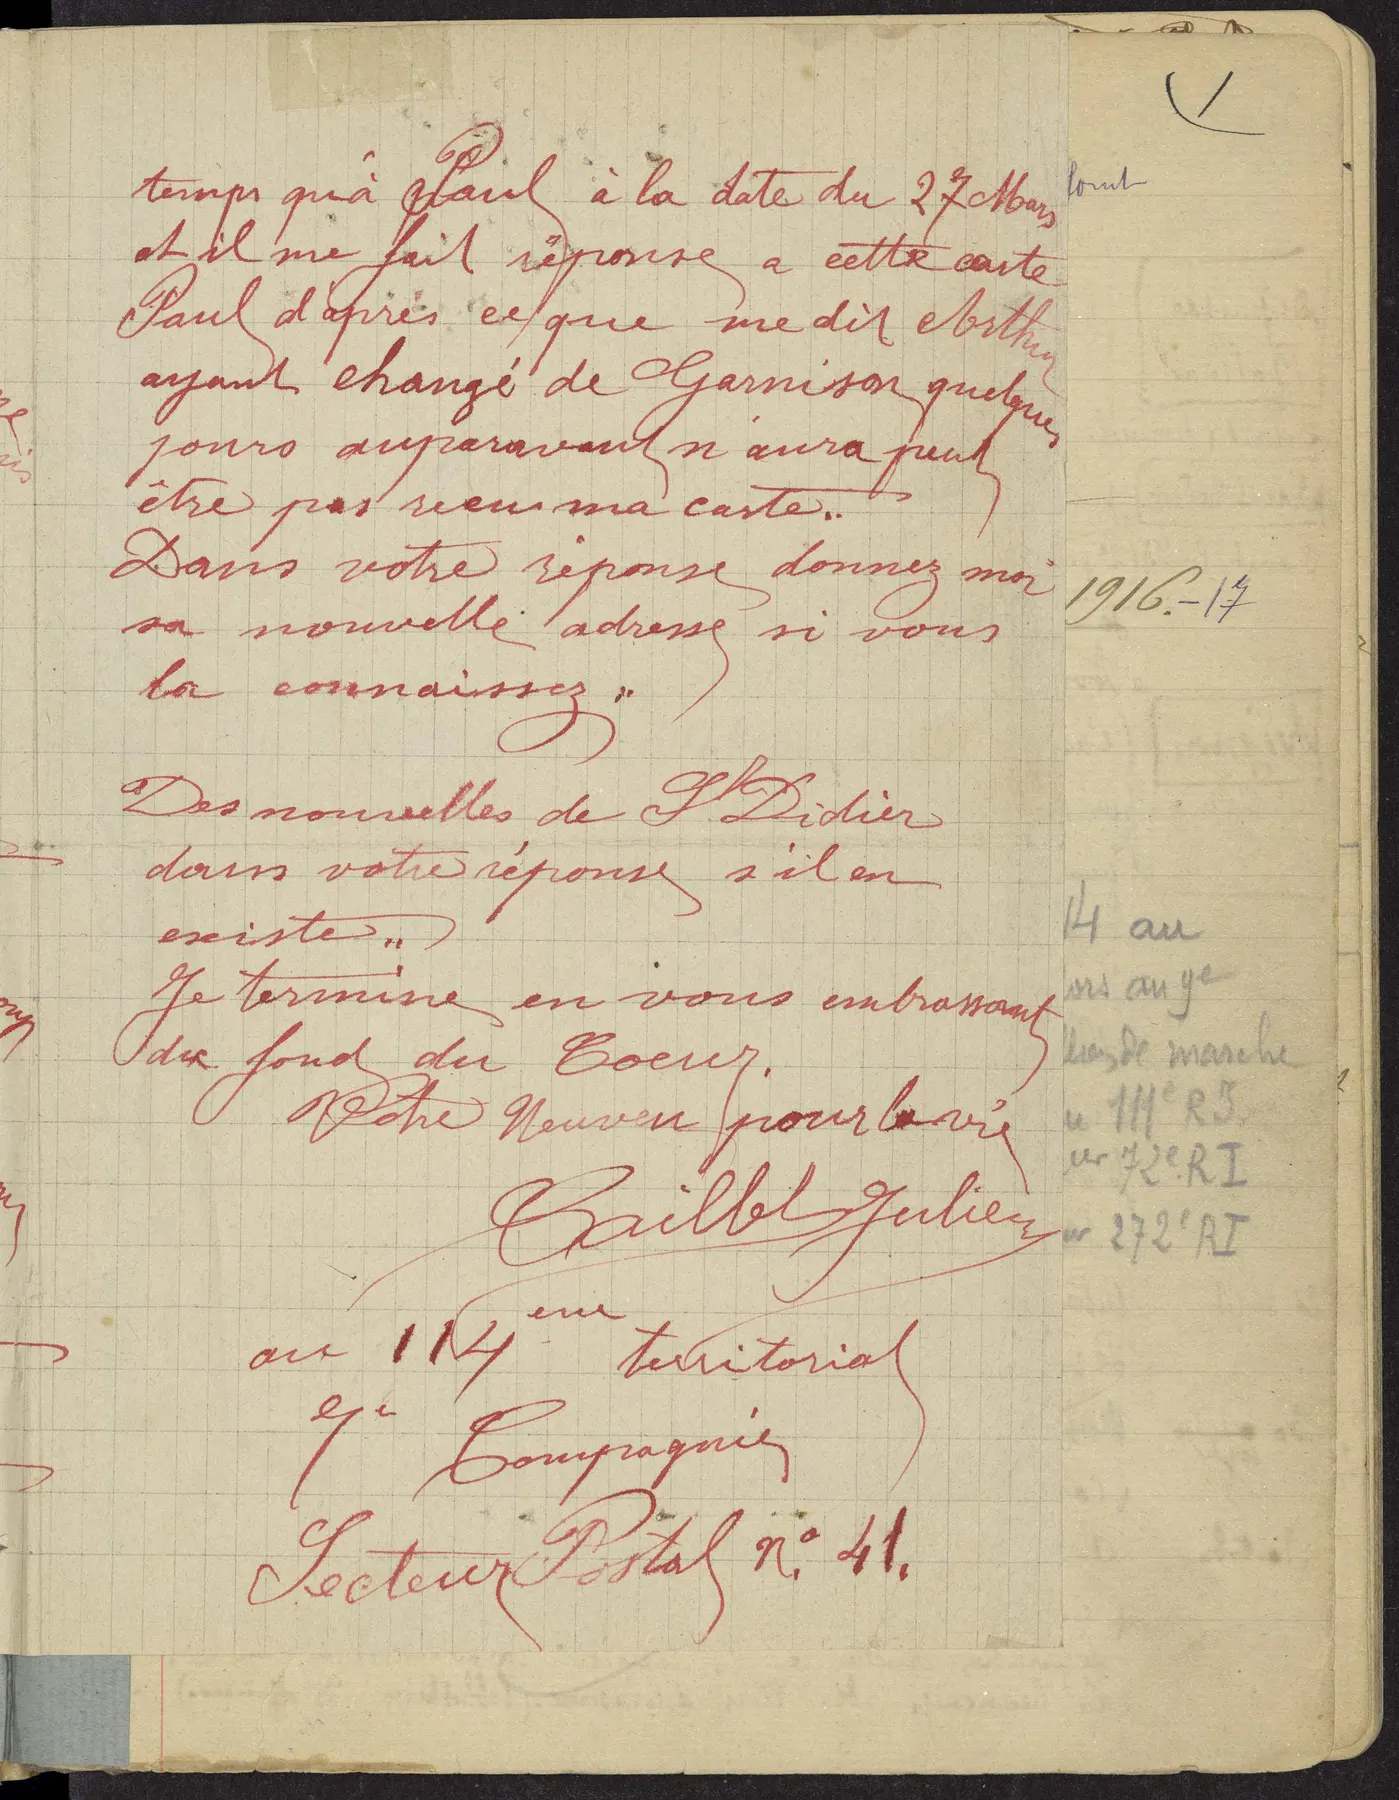 temps qu'à Paul à la date du 27 Mars
et il me fait réponse a cette carte
Paul d'après ce que me dit Arthur
ayant changé de Garnison quelques
jours auparavant n'aura peut
être pas recu ma carte..
Dans votre réponse donnez moi
sa nouvelle adresse si vous
la connaissez..
Des nouvelles de St Didier
dans votre réponse s'il en
existe..
Je termine en vous embrassant
du fond du Coeur.
Votre Neuveu pour la vie
Caillet Julien
au 114eme territorial
7e Compagnie
Secteur Postal n° 41.
1916.-17
14 au
au 9e
de marche
111e RI
72e RI
272e RI